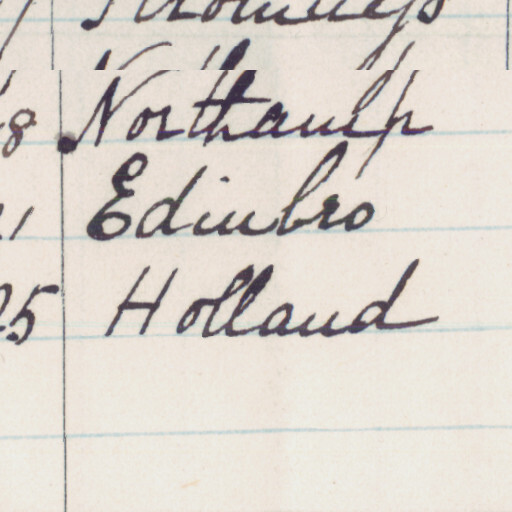 8 Northamp
Edinbro
25 Holland